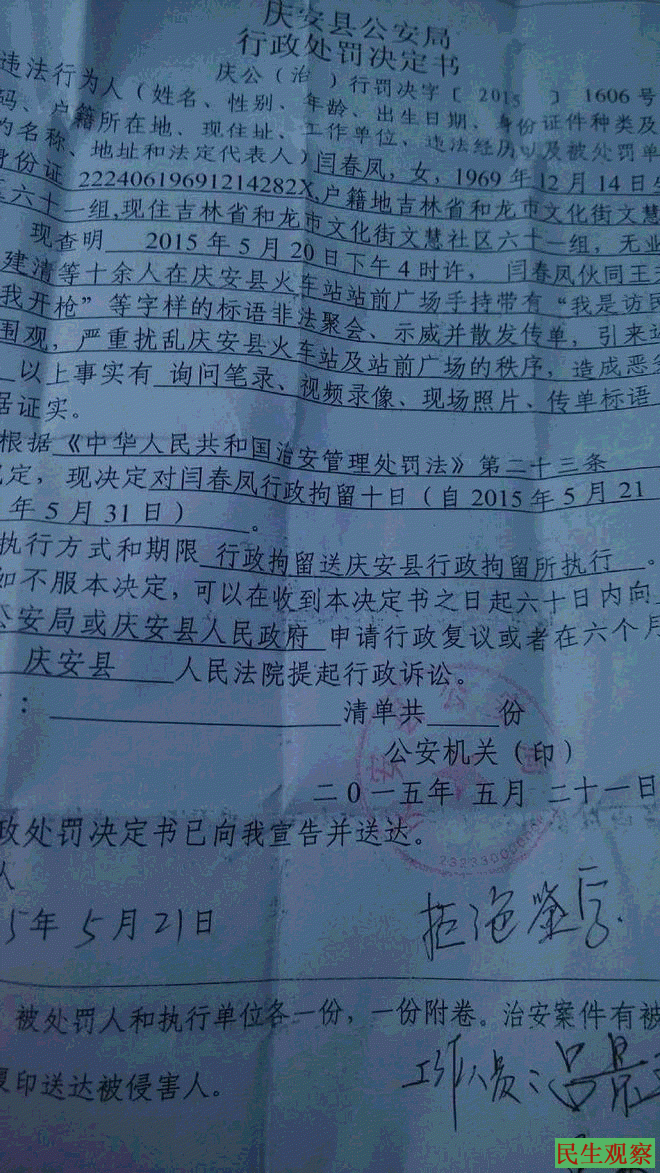 庆安县公安局
行政处罚决定书
庆公（治 ）行罚决字〔 2015 〕 1606 号
违法行为人（姓名、性别、年龄、出生日期、身份证件种类及
码、户籍所在地、现住址、工作单位、违法经历以及被处罚单
的名称、地址和法定代表人）闫春凤，女，1969 年 12 月 14 日生
身份证 22240619691214282X,户籍地吉林省和龙市文化街文慧
六十一组,现住吉林省和龙市文化街文慧社区六十一组，无业
现查明 2015 年 5 月 20 日下午 4 时许， 闫春凤伙同王
建清等十余人在庆安县火车站站前广场手持带有“我是访民
我开枪”等字样的标语非法聚会、示威并散发传单，引来
围观，严重扰乱庆安县火车站及站前广场的秩序，造成恶
以上事实有 询问笔录、视频录像、现场照片、传单标语
据证实。
根据《中华人民共和国治安管理处罚法》第二十三条
定，现决定对闫春凤行政拘留十日（自 2015 年 5 月 21
年 5 月 31 日） 。
执行方式和期限 行政拘留送庆安县行政拘留所执行 。
如不服本决定，可以在收到本决定书之日起六十日内向
公安局或庆安县人民政府 申请行政复议或者在六个月
庆安县 人民法院提起行政诉讼。
： 清单共 份
公安机关（印）
二0一五年 五月 二十一日
政处罚决定书已向我宣告并送达。
人
5年 5 月 21 日
拒绝签字.
被处罚人和执行单位各一份，一份附卷。治安案件有被
复印送达被侵害人。
工作人员：吕景
民生观察